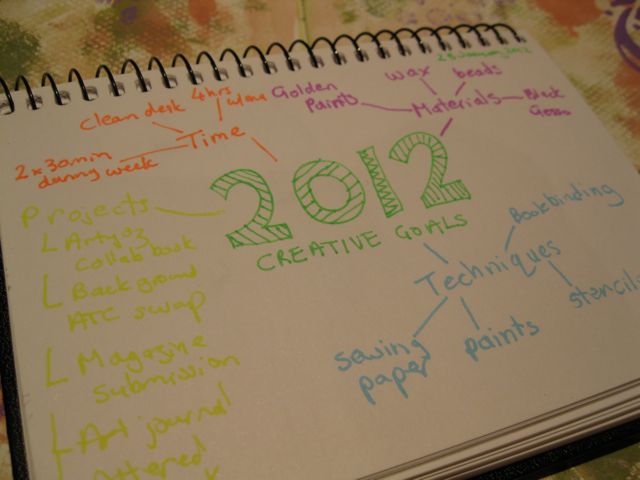 28 January 2012
Clean desk
4hrs
Time
2 x 30min
during week
Golden
Paints
wax
beads
Materials
Black
Gesso
2012
CREATIVE GOALS
Projects
Artyoz
Collab book
Background
ATC swap
Magazine
submission
Art journal
Altered
Techniques
Bookbinding
stencils
paints
sewing
paper